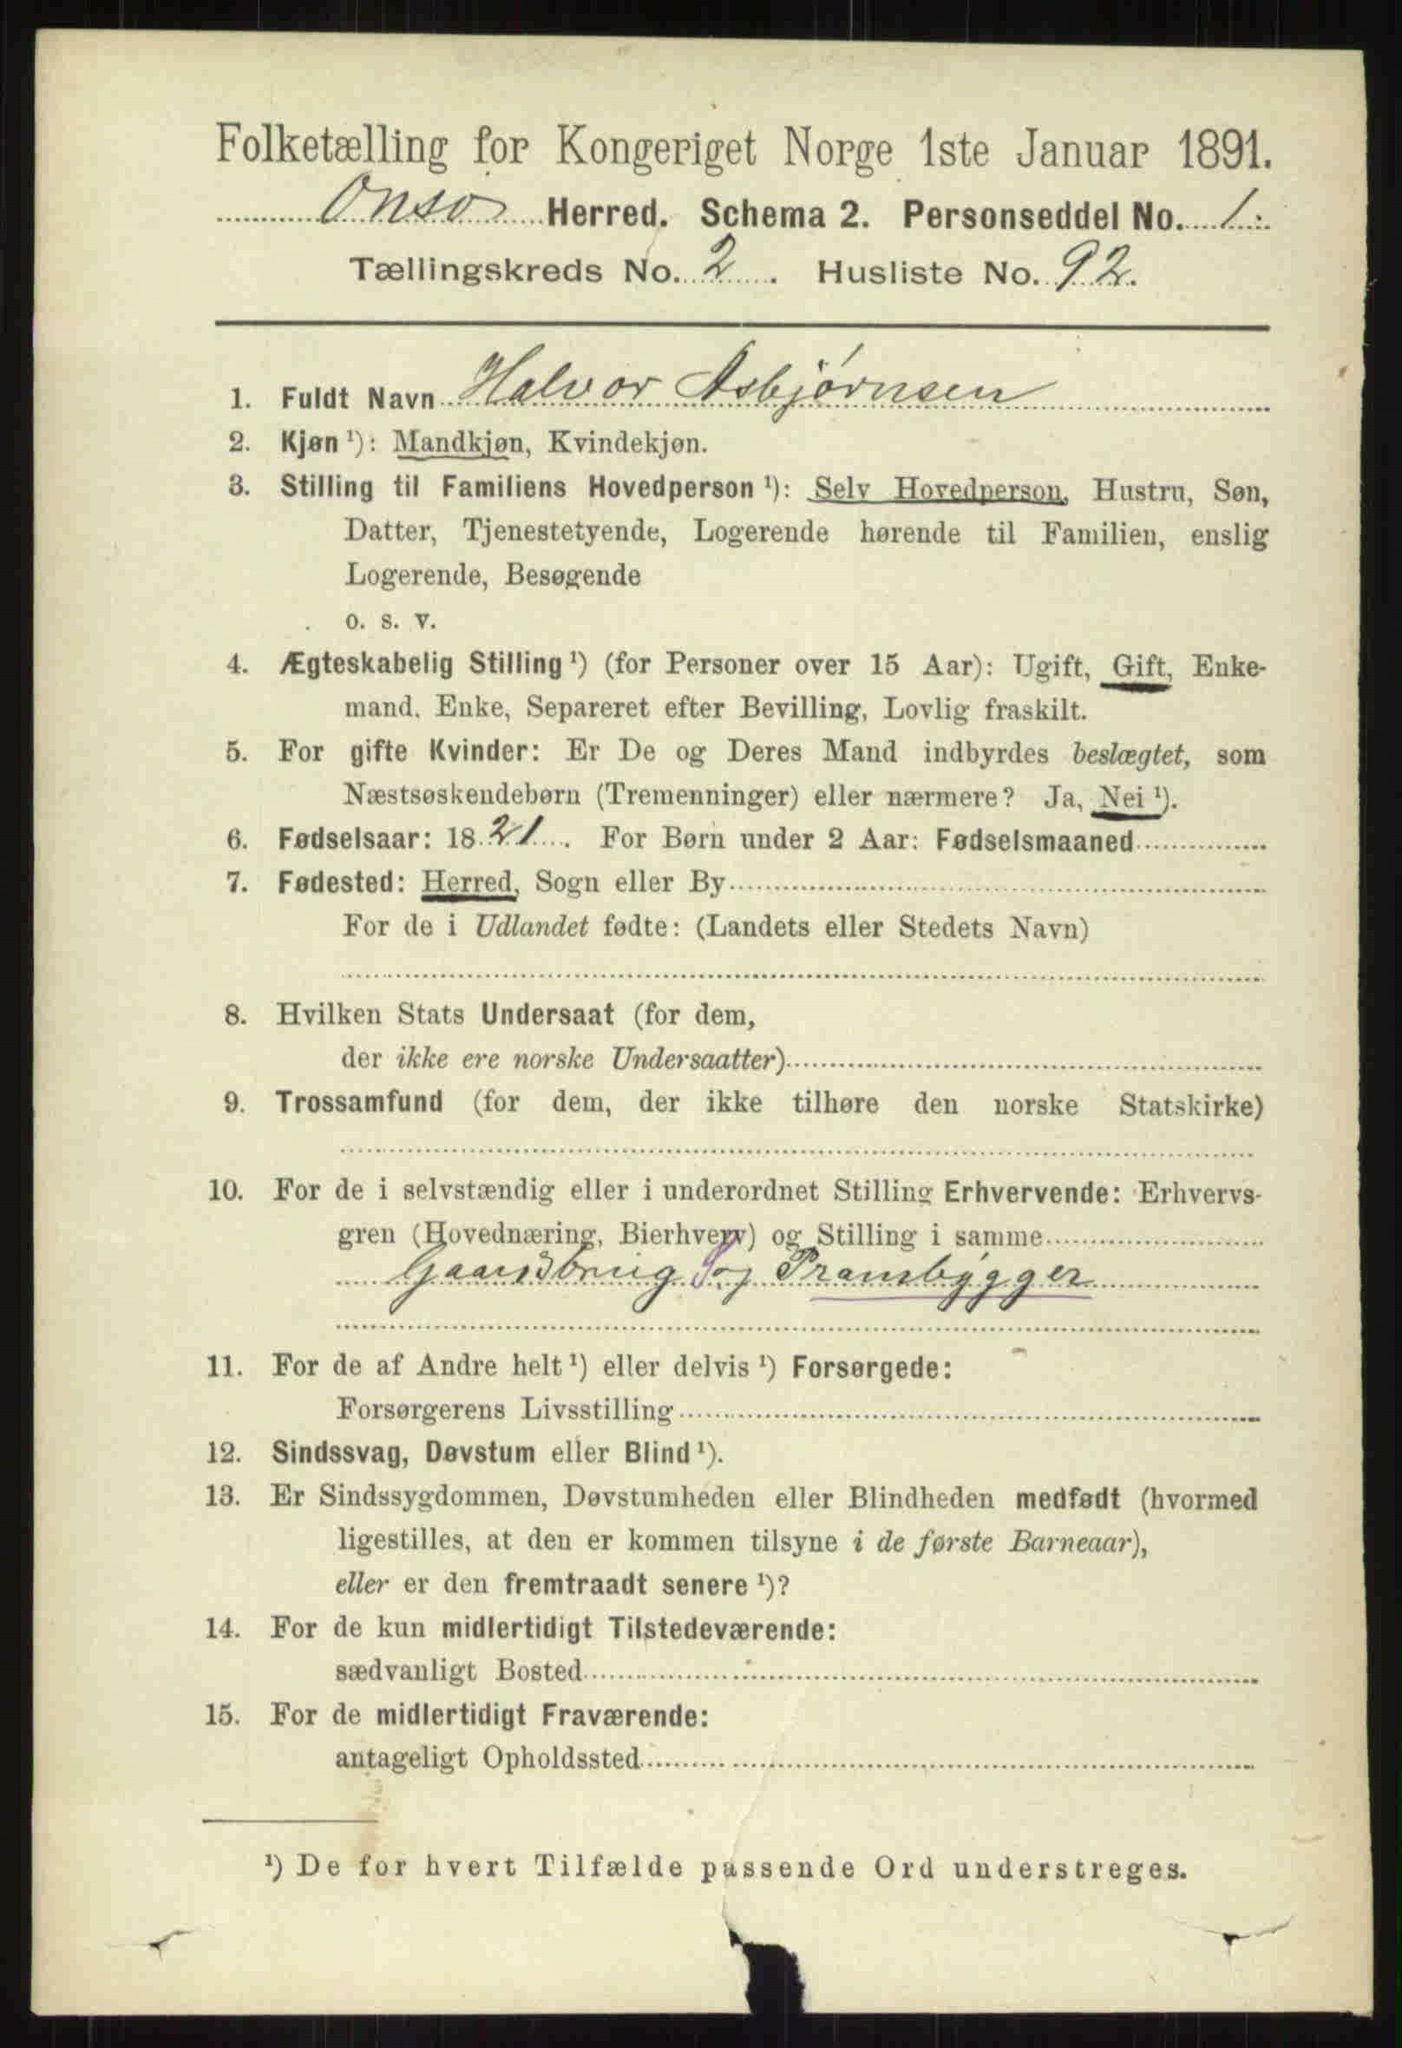 Folketælling for Kongeriget Norge 1ste Januar 1891.
Onsø Herred. Schema 2. Personseddel No. 1.
Tællingskreds No. 2. Husliste No. 92.
1. Fuldt Navn Halvor Asbjørnsen
2. Kjøn ¹): Mandkjøn, Kvindekjøn.
3. Stilling til Familiens Hovedperson ¹): Selv Hovedperson, Hustru, Søn,
Datter, Tjenestetyende, Logerende hørende til Familien, enslig
Logerende, Besøgende
o. s. v.
4. Ægteskabelig Stilling ¹) (for Personer over 15 Aar): Ugift, Gift, Enke-
mand, Enke, Separeret efter Bevilling, Lovlig fraskilt.
5. For gifte Kvinder: Er De og Deres Mand indbyrdes beslægtet, som
Næstsøskendebørn (Tremenninger) eller nærmere? Ja, Nei ¹).
6. Fødselsaar: 1821. For Børn under 2 Aar: Fødselsmaaned
7. Fødested: Herred, Sogn eller By
For de i Udlandet fødte: (Landets eller Stedets Navn)
8. Hvilken Stats Undersaat (for dem,
der ikke ere norske Undersaatter)
9. Trossamfund (for dem, der ikke tilhøre den norske Statskirke)
10. For de i selvstændig eller i underordnet Stilling Erhvervende: Erhvervs-
gren (Hovednæring, Bierhverv) og Stilling i samme
og Prambygger
11. For de af Andre helt ¹) eller delvis ¹) Forsørgede:
Forsørgerens Livsstilling
12. Sindssvag, Døvstum eller Blind ¹).
13. Er Sindssygdommen, Døvstumheden eller Blindheden medfødt (hvormed
ligestilles, at den er kommen tilsyne i de første Barneaar),
eller er den fremtraadt senere ¹)?
14. For de kun midlertidigt Tilstedeværende:
sædvanligt Bosted
15. For de midlertidigt Fraværende:
antageligt Opholdssted
¹) De for hvert Tilfælde passende Ord understreges.